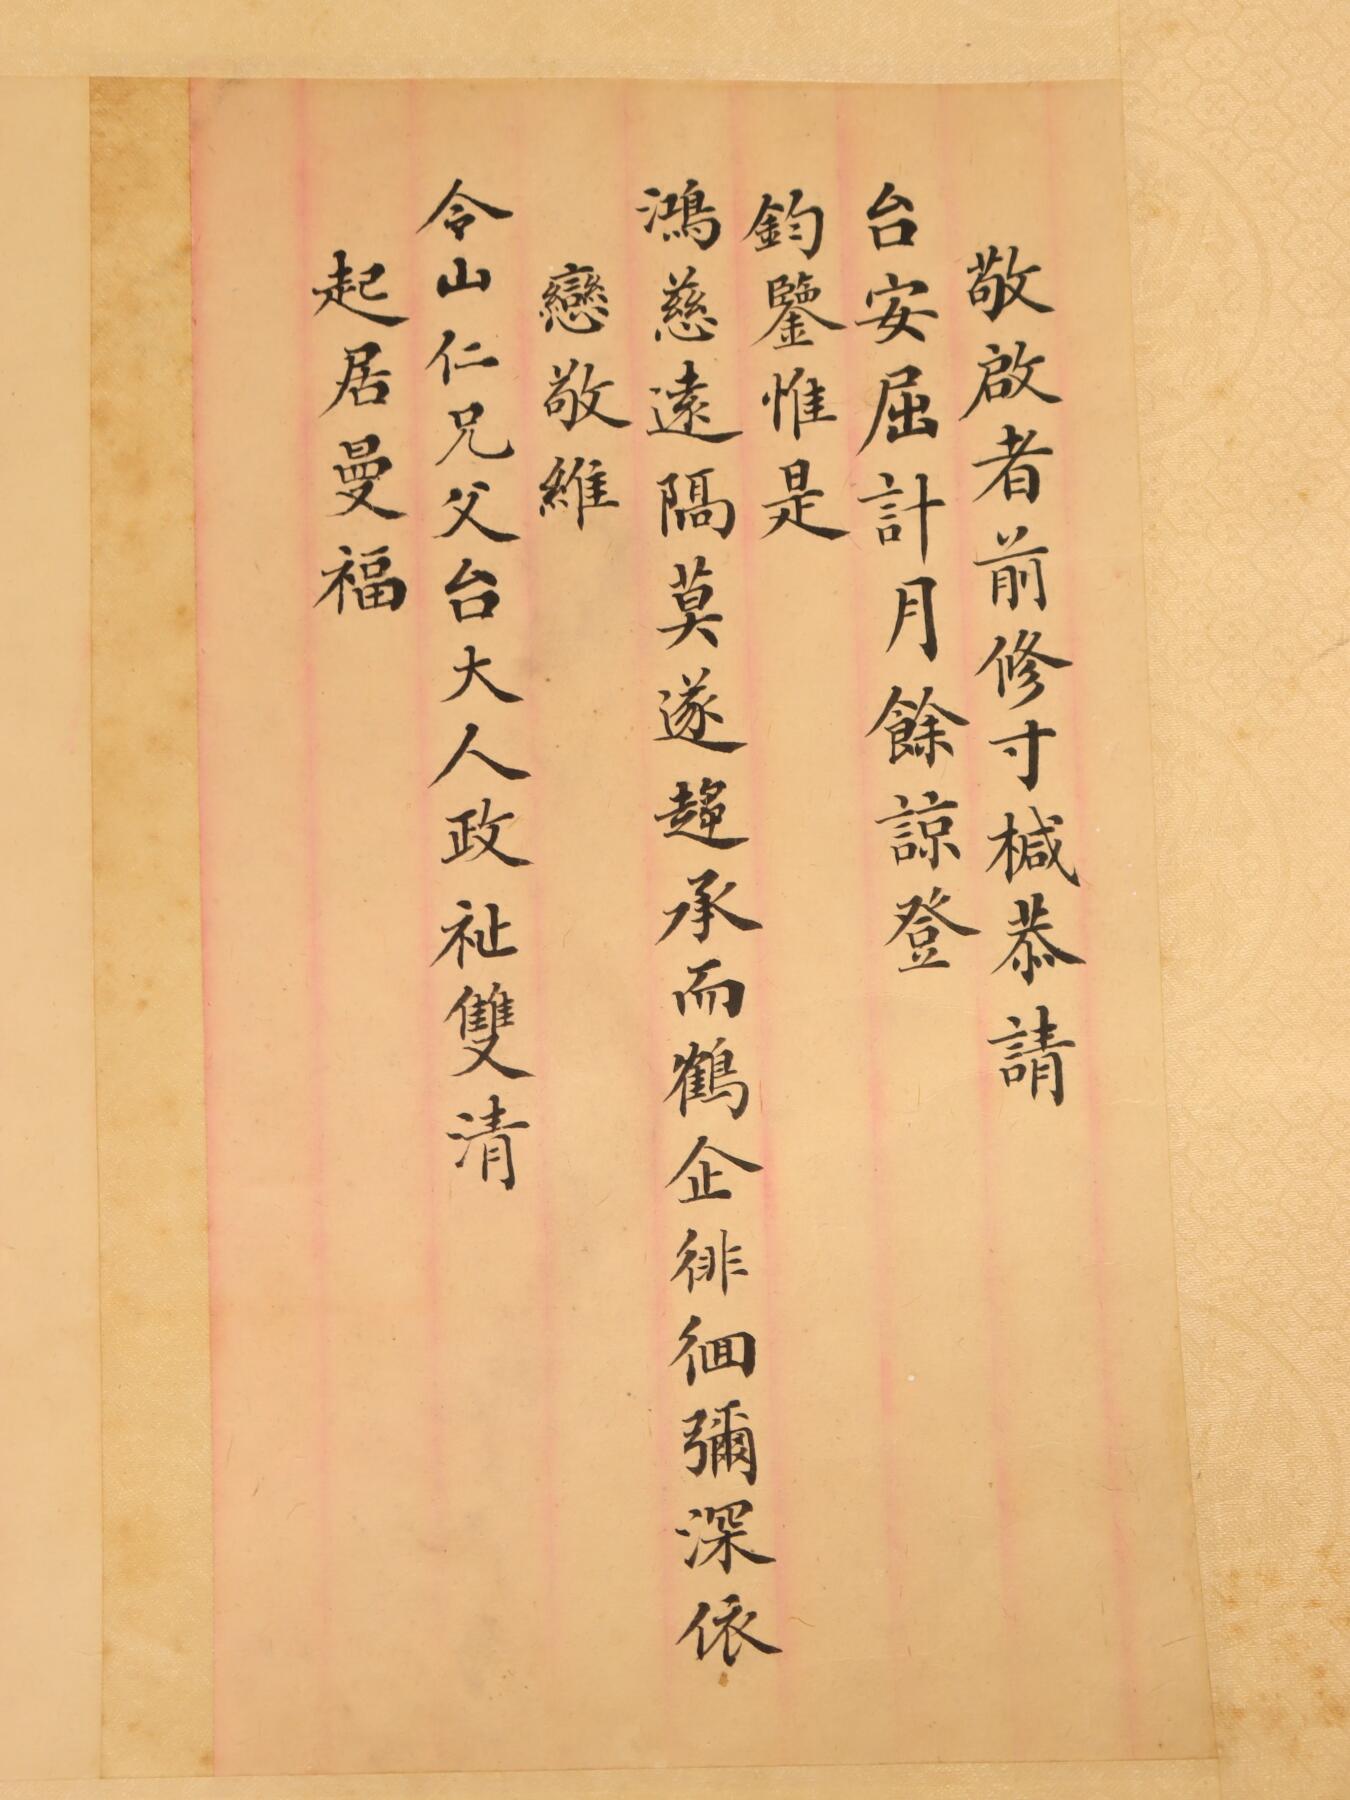 敬啟者前修寸椷恭請
台安屈計月餘諒登
鈞鑒惟是
鴻慈遠隔莫遂趨承而鶴企徘徊彌深依
戀敬維
令山仁兄父台大人政祉雙清
起居曼福